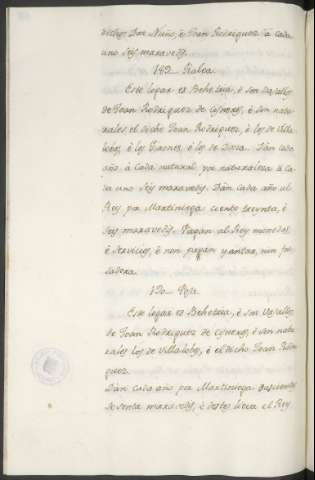 dichos Don Nuño, é Joan Rodriguez à cada
uno seis maravedis.
189.
Este logar es Behetria, è son Vasallos
de Joan Rodriguez de Cisneros, è son natu-
rales el dicho Joan Rodriguez, è los de Villa-
lobos, è los Girones, è los de Dan cada
año à cada natural por naturaleza à ca-
da uno seis maravedis. Dan cada año al
Rey por Martiniega ciento treynta, è
seis maravedis. Pagan al Rey monedas
è servicios, è non pagan yantar, nin fon-
sadera.
190.
Este logar es Behetria, è son Vasallos
de Joan Rodriguez de Cisneros, è son natu-
rales los de Villalobos, è el dicho Joan Rodri-
guez.
Dàn cada año por Martiniega doscientos
sesenta maravedis, è destos lieva el Rey